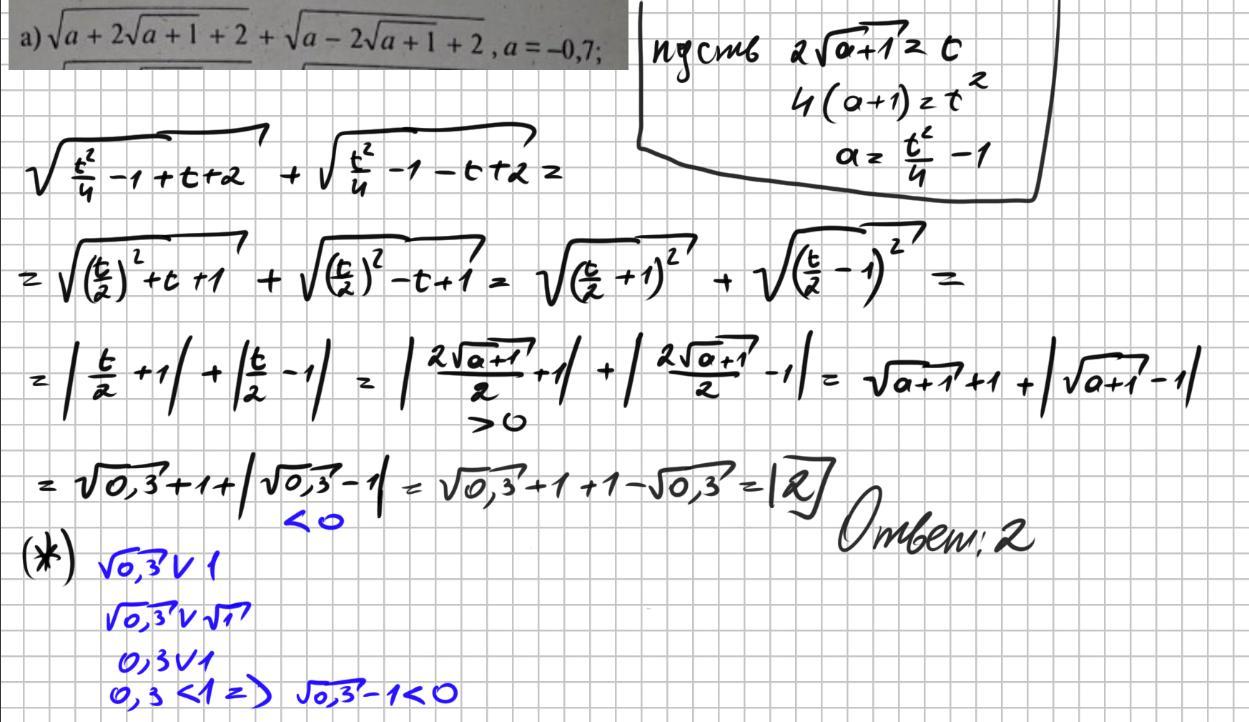 а) √(a + 2√(a + 1) + 2) + √(a − 2√(a + 1) + 2), a = −0,7;
пусть 2√(a+1) = t
4(a+1) = t²
a = t²/4 − 1
√(t²/4 − 1 + t + 2) + √(t²/4 − 1 − t + 2) =
= √((t/2)² + t + 1) + √((t/2)² − t + 1) = √((t/2 + 1)²) + √((t/2 − 1)²) =
= |t/2 + 1| + |t/2 − 1| = |2√(a+1)/2 + 1| + |2√(a+1)/2 − 1| = √(a+1) + 1 + |√(a+1) − 1|
> 0
= √0,3 + 1 + |√0,3 − 1| = √0,3 + 1 + 1 − √0,3 = |2|
< 0
Ответ: 2
(*) √0,3 ∨ 1
√0,3 ∨ √1
0,3 ∨ 1
0,3 < 1 => √0,3 − 1 < 0